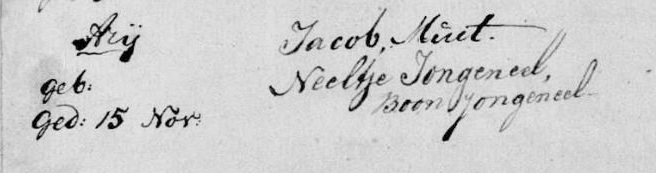 Arij Jacob, Müet.
Neeltje Jongeneel,
geb: Boon Jongeneel
Ged: 15 Nov: